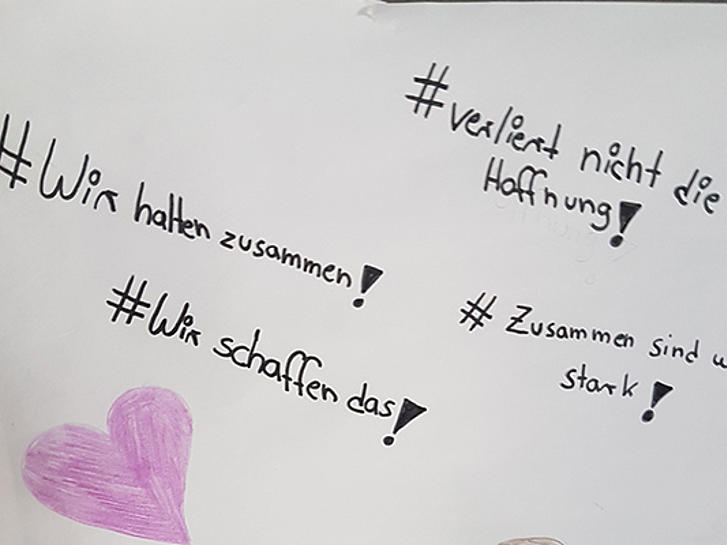 #verliert nicht die
Hoffnung!
#Wir halten zusammen!
#Wir schaffen das!
# Zusammen sind
stark!